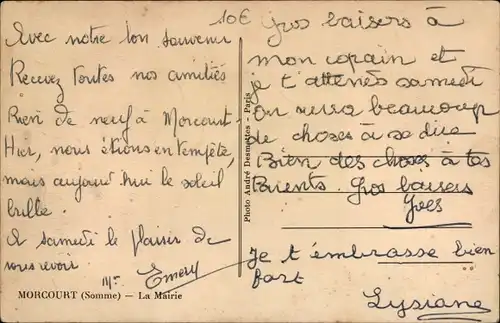 10€
Avec notre bon souvenir
Recevez toutes nos amitiés
Rien de neuf à Morcourt
Hier, nous étions en tempête,
mais aujourd'hui le soleil
brille.
A samedi le plaisir de
vous revoir.
Emery
MORCOURT (Somme) — La Mairie
Photo André Desmottes - Paris
Gros baisers à
mon copain et
je t'attenés samedi
On aura beaucoup
de choses à se dire
Bien des choses à tes
Parents. Gros baisers
Yves
Je t'embrasse bien
fort
Lysiane